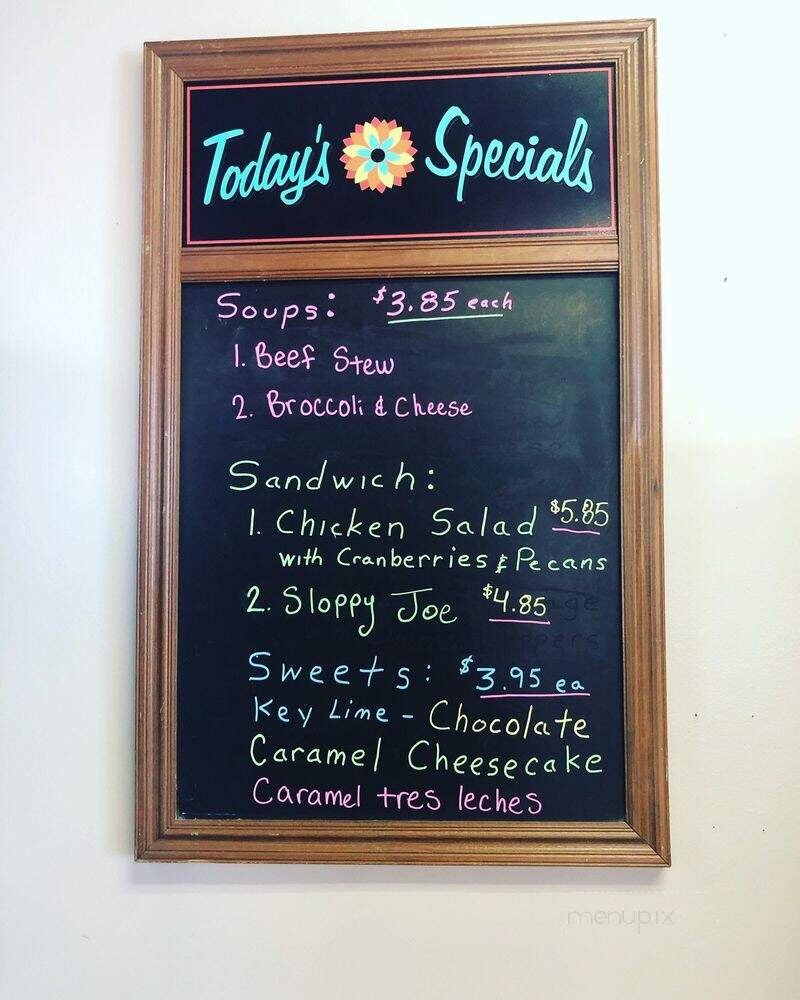 Today's Specials
Soups: $3.85 each
1. Beef Stew
2. Broccoli & Cheese
Sandwich:
1. Chicken Salad $5.85
with Cranberries & Pecans
2. Sloppy Joe $4.85
Sweets: $3.95 ea
Key Lime - Chocolate
Caramel Cheesecake
Caramel tres leches
menupix